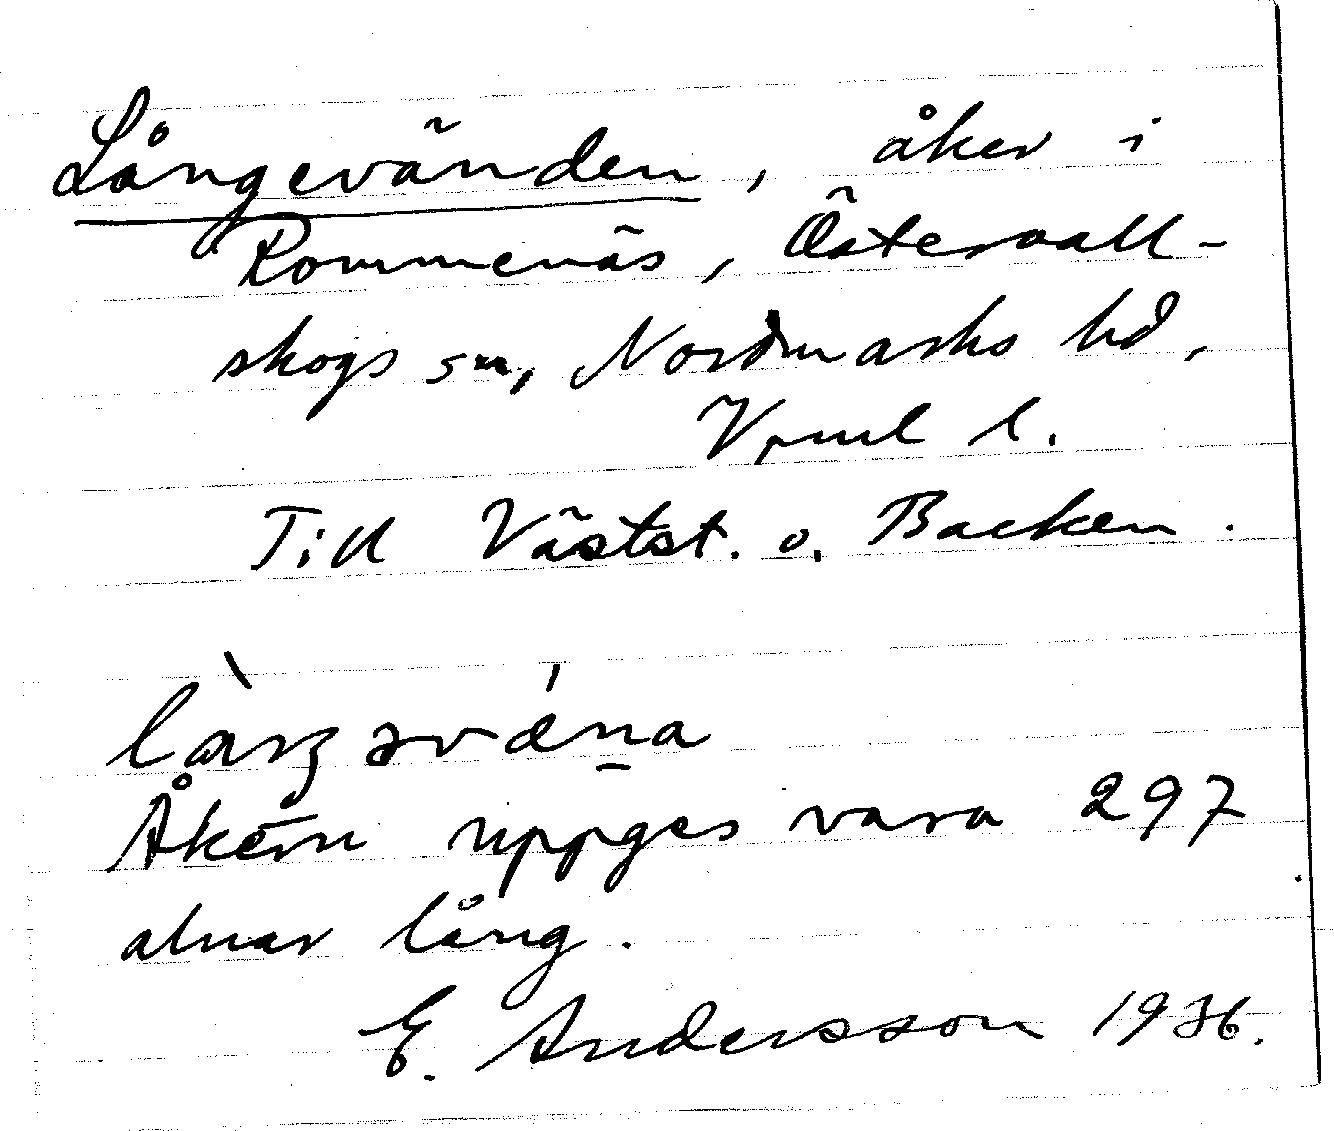 Långevänden, åker i
Rommenäs, Östervall-
skogs sn, Nordmarks hd,
Vrml l.
Till Västst. o. Backen.
làŋəvǽna
Åkern uppges vara 297
alnar lång.
E. Andersson 1936.